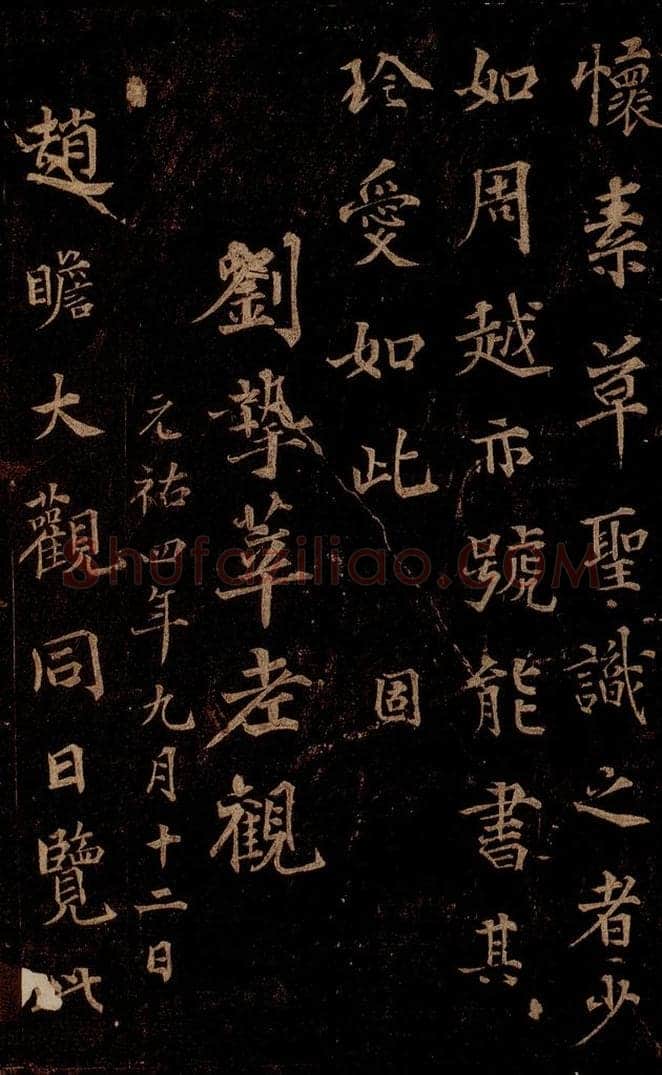 懷素草聖識之者少
如周越亦號能書其
珎愛如此 固
劉摯莘老觀
元祐四年九月十二日
趙瞻大觀同日覽此
shufaziliao.com